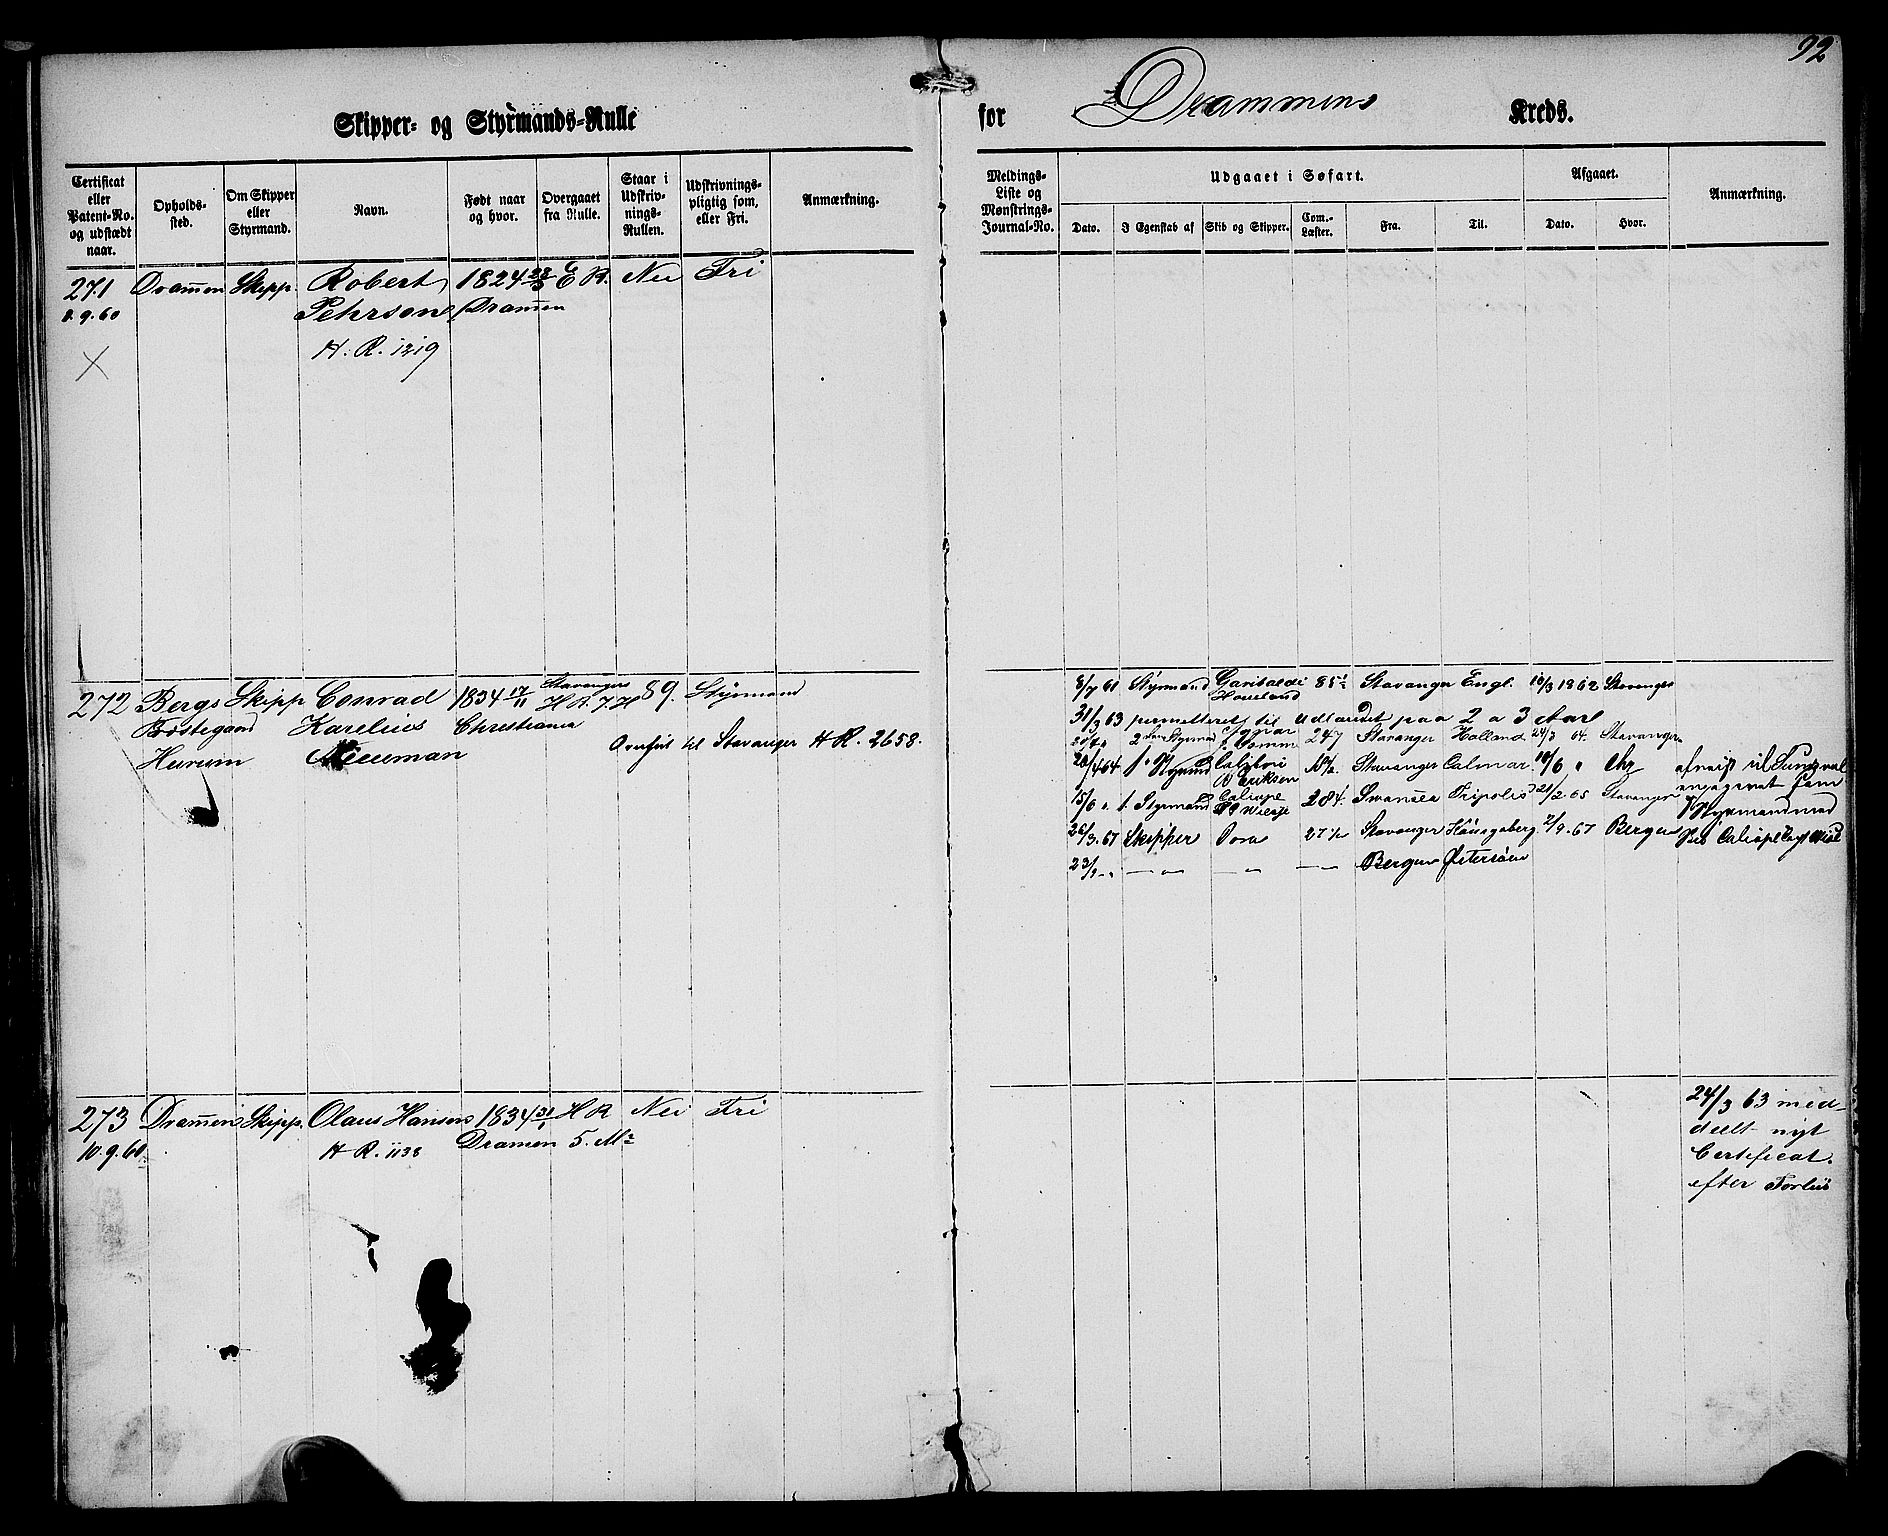 92
Skipper- og Styrmands-Rulle for Drammens Kreds.
Certificat eller Patent-No. og udstædt naar.
Opholds-sted.
Om Skipper eller Styrmand.
Navn.
Født naar og hvor.
Overgaaet fra Rulle.
Staar i Udskriv-nings-Rullen.
Udskrivnings-pligtig som, eller Fri.
Anmærkning.
Meldings-Liste og Mønstrings-Journal-No.
Udgaaet i Søfart.
Dato.
I Egenskab af
Skib og Skipper.
Com.-Læster.
Fra.
Til.
Afgaaet.
Dato.
Hvor.
Anmærkning.
271 Dramen Skipp. Robert 1824 E R. Nei Fri
8.9.60 Pehrson Dramen
H. R. 1219
272 Bergs Skipp Conrad 1834 17/11 Stavangers H. R. 7. H 89. Styrmand
Karelius Christiania
Hurum Neeuman
Overført til Stavanger H R. 2658.
8/7 61 Styrmand Garibaldi 85½ Stavanger Engl. 18/3 1862 Stavanger
31/3 63 permitteret til Udlandet paa 2 a 3 Aar
2 Styrmd 247 Stavanger Holland 24/3 64. Stavanger
20/4 64 Styrmd Eriksen Stavanger Calmar 10/6 "
15/6 " 1. Styrmand Caliope Swansea Tripolis 21/2 65 Stavanger
Styrmand med
26/3.67 Skipper Dora 27½ Stavanger 2/9.67 Bergen
23/9 - " — " — — " — — Bergen
273 Dramen Skipp. Olaus Hansen 1834 31/1 H R Nei Fri
10.9.60 H R. 1138 Dramen 5. M
24/3 63 med-
deelt nyt
Certificat.
efter Forliis